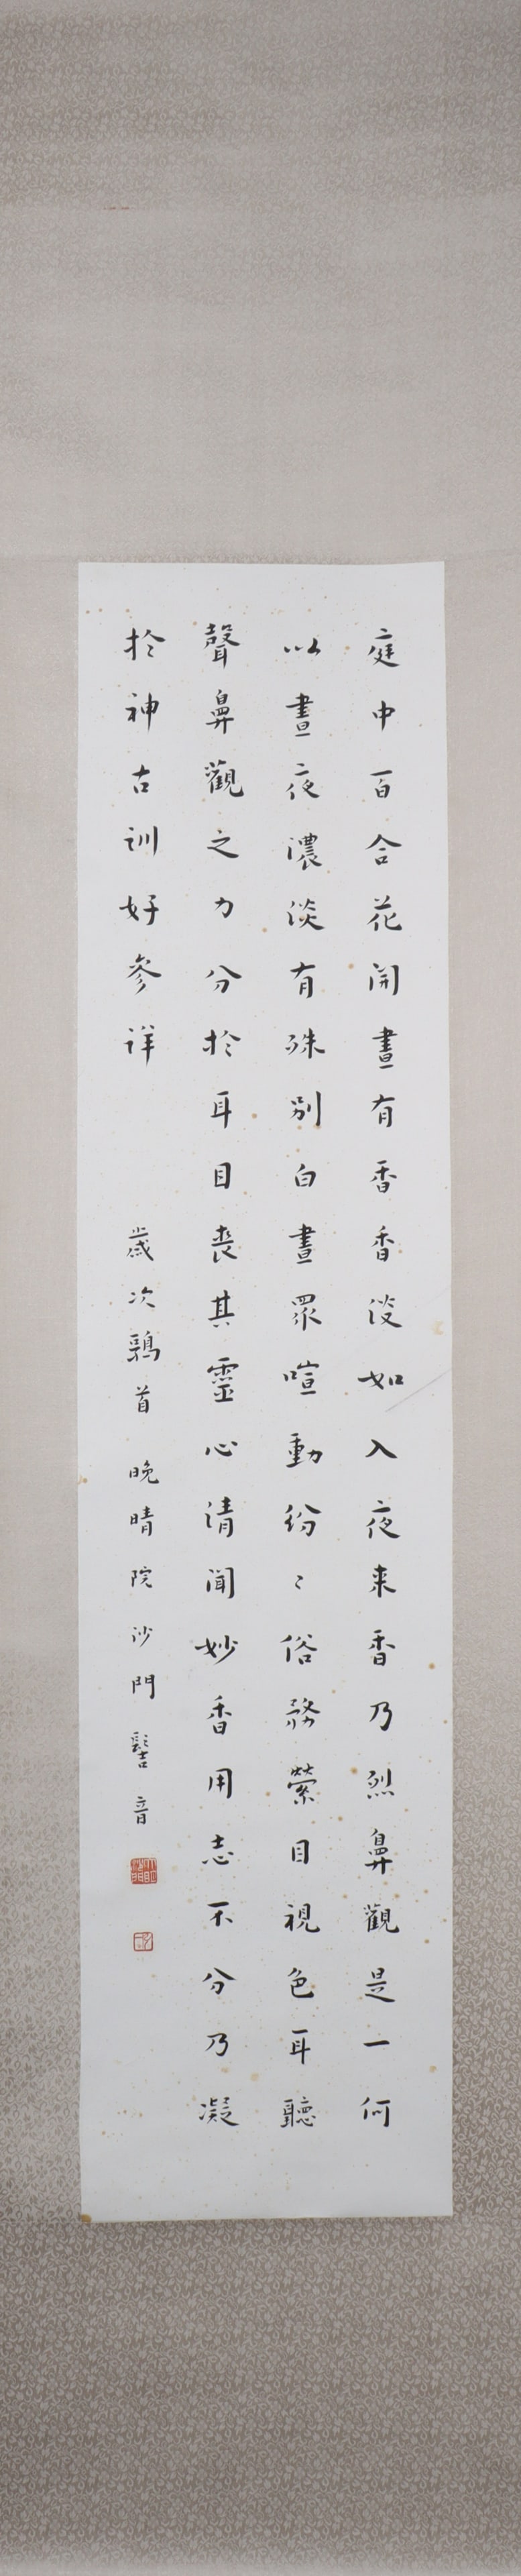 庭中百合花開晝有香香淡如入夜来香乃烈鼻觀是一何
以晝夜濃淡有殊別白晝眾喧動紛〻俗務縈目視色耳聽
聲鼻觀之力分於耳目喪其靈心清聞妙香用志不分乃凝
於神古訓好參詳
歲次鶉首 晚晴院沙門髻音